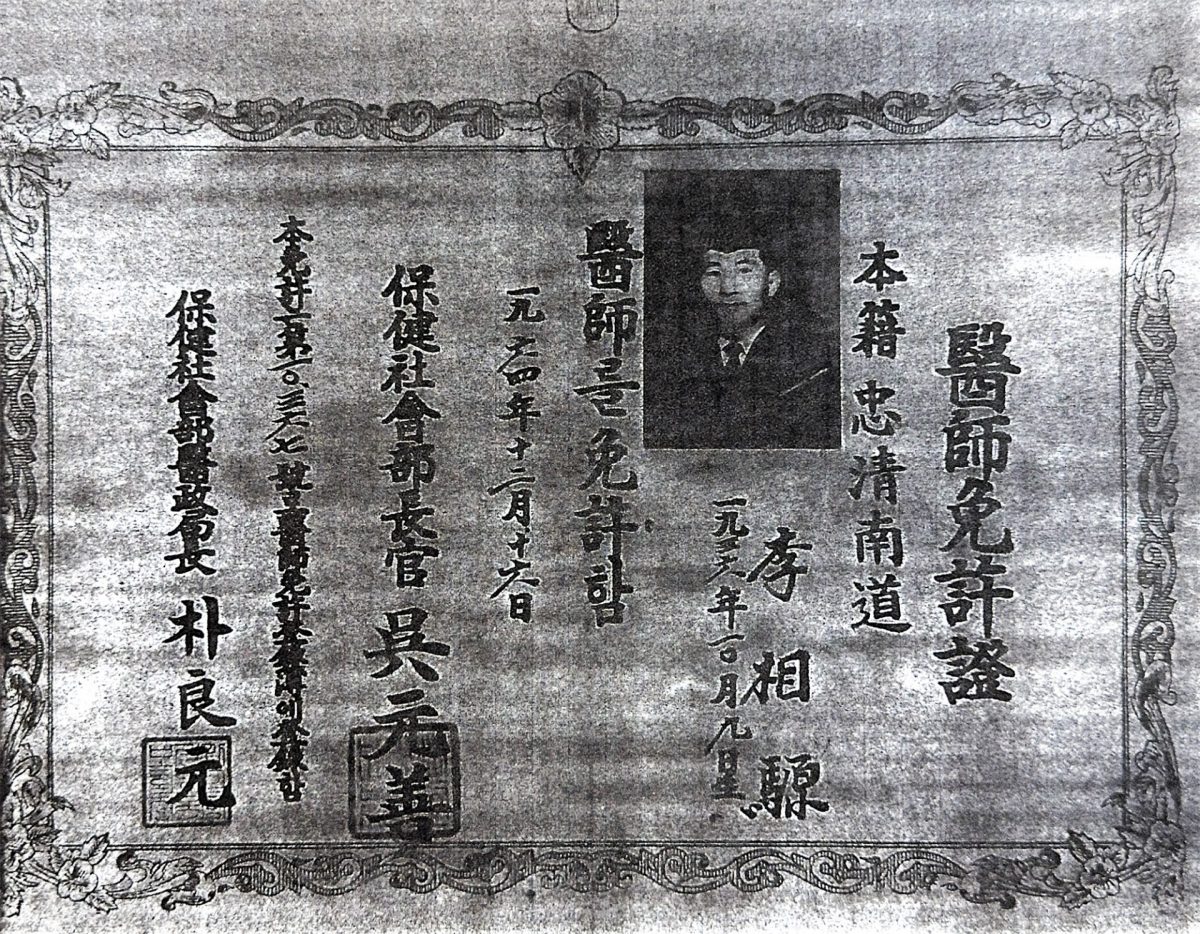 醫師免許證
本籍 忠清南道
李相騵
一九三六年一〇月九日生
醫師를免許함
一九六四年十二月十六日
保健社會部長官 吳元善
本免許를第一〇.三六七號로醫師免許
保健社會部醫政局長 朴良元